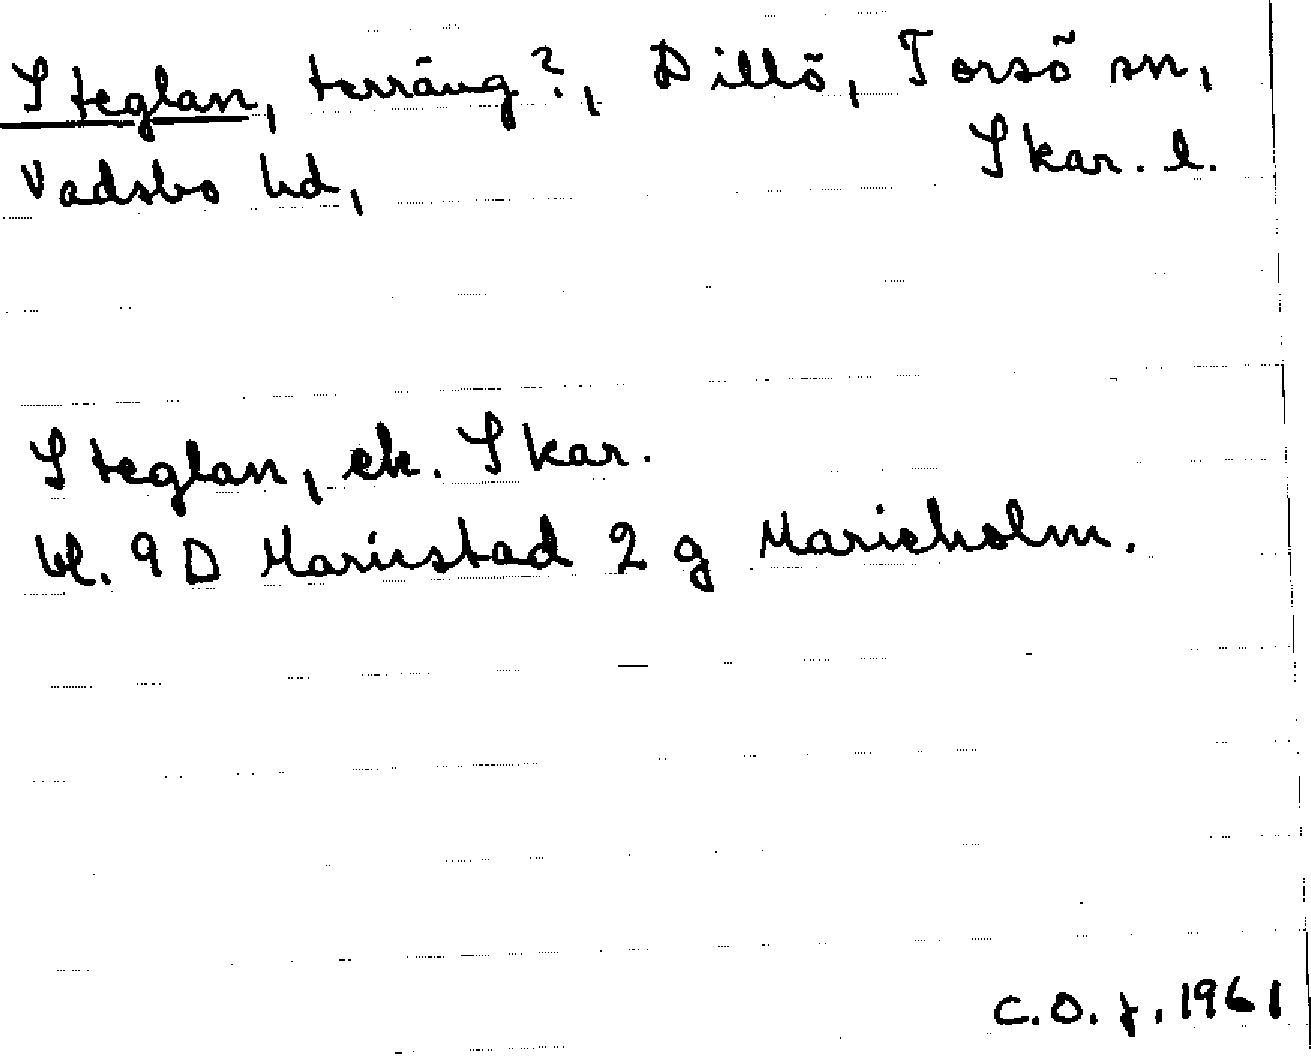 Steglan, terräng?, Dillö, Torsö sn,
Vadsbo hd, Skar. l.
Steglan, ek. Skar.
bl. 9D Mariestad 2 g Marieholm.
C.O.f. 1961